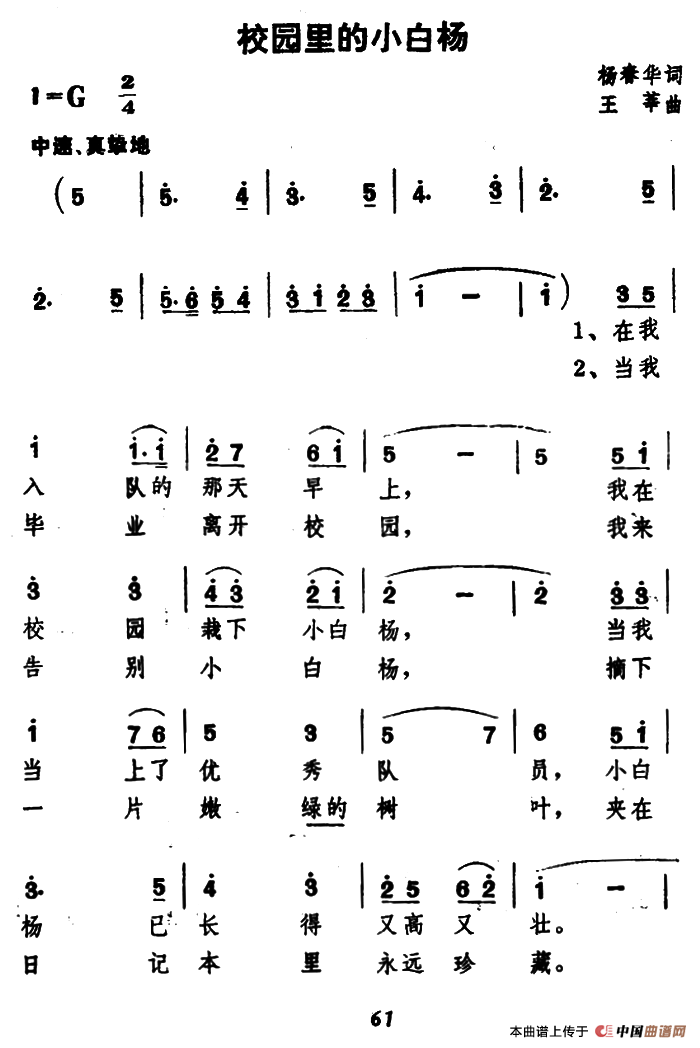 校园里的小白杨
杨春华词
1=G 2/4
王莘曲
中速、真挚地
(5 | 5· 4 | 3· 5 | 4· 3 | 2· 5 |
2· 5 | 5·6 5 4 | 3 1 2 3 | 1 — | 1) 3 5
1、在我
2、当我
1 1·1 | 2 7 6 1 | 5 — | 5 5 1 |
入 队的 那天 早 上, 我在
毕 业 离开 校 园, 我来
3 3 | 4 3 2 1 | 2 — | 2 3 3 |
校 园 栽下 小白 杨, 当我
告 别 小 白 杨, 摘下
1 7 6 | 5 3 | 5 7 | 6 5 1 |
当 上了 优 秀 队 员, 小白
一 片 嫩 绿的 树 叶, 夹在
3· 5 | 4 3 | 2 5 6 2 | 1 — |
杨 已 长 得 又高 又 壮。
日 记 本 里 永远 珍 藏。
61
本曲谱上传于 中国曲谱网